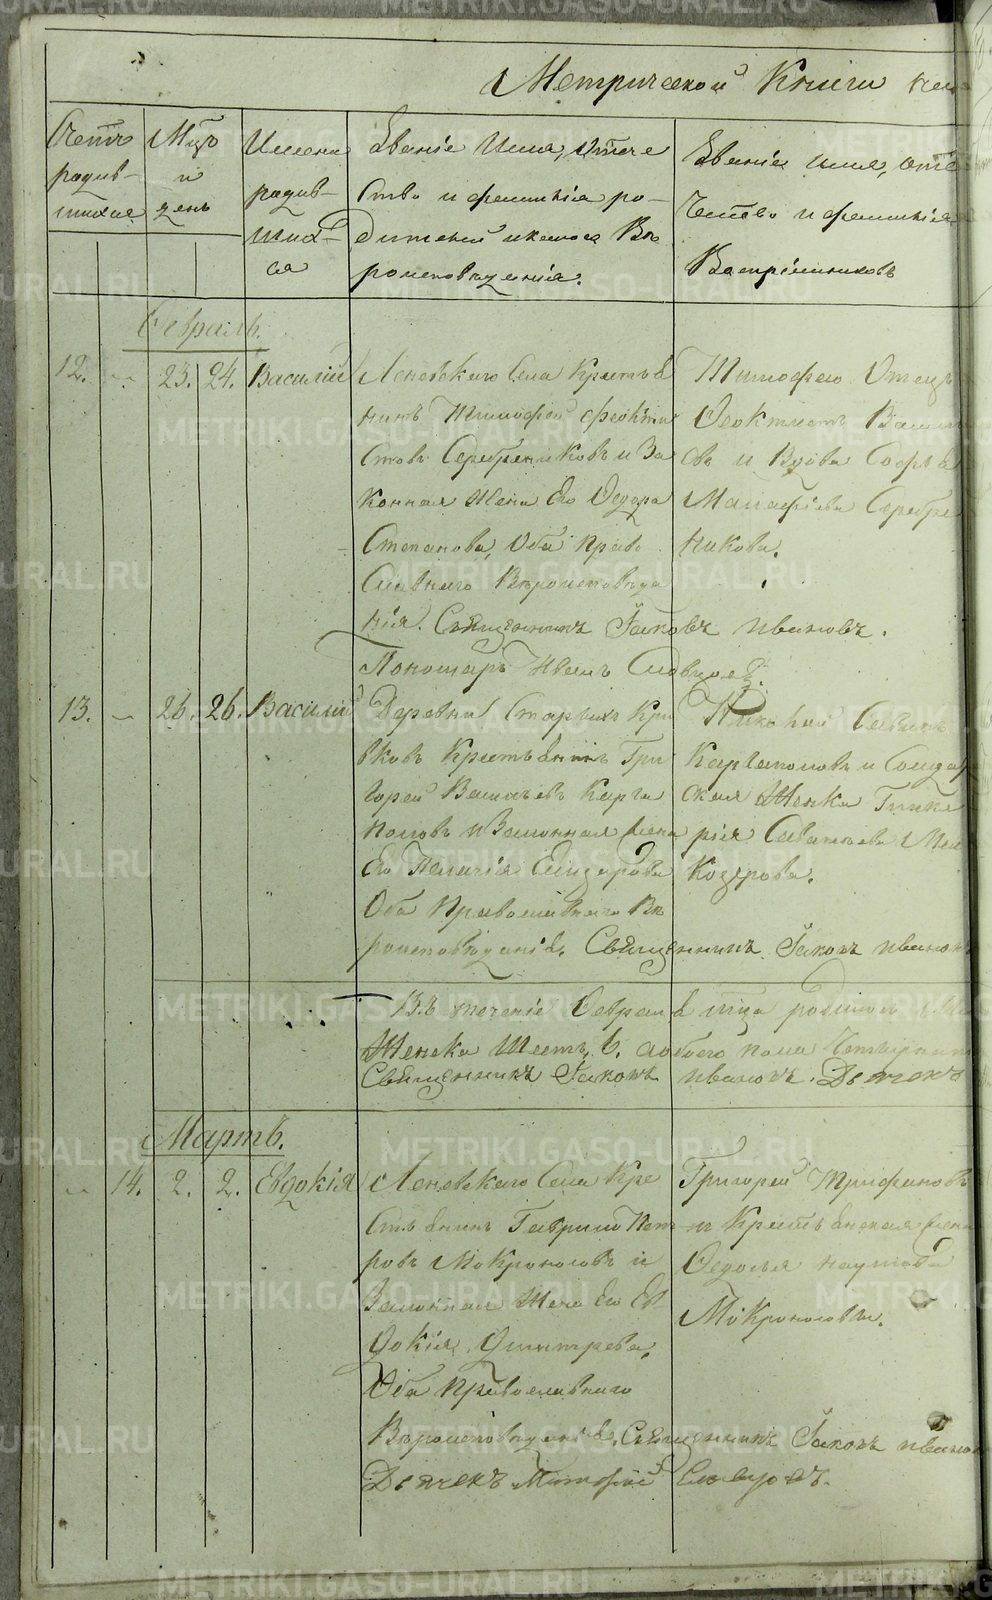 Метрической Книги
Счетъ
родив-
шихся
Мцъ
и
день
Имена
родив-
шихъ-
ся
Званіе Имя, Отече
ство и фамилія ро-
дителей и какова Вѣ
роисповѣданія.
Званіе имя, отé
чество и фамилія
Воспріемниковъ
Февраль.
12. 23. 24. Василій
Леневскаго Села Крестья
нинъ Тимофей Феокти
стовъ Серебрениковъ и За
конная Жена Его Ѳедора
Степанова, Оба Право
славнаго Вѣроисповѣда
нія. Священникъ Іаковъ Ивановъ.
Пономарь Иванъ Словцовъ.
Тимофею Отецъ
Ѳеоктистъ Васил
въ и Вдова Софья
Серебре
никова.
13. 26. 26. Василій
Деревни Старыхъ Кри
вковъ Крестьянинъ Гри
горей Васильевъ Карга
половъ и Законная Жена
Его Пелагія
Оба Православнаго Вѣ
роисповѣданія. Священникъ Іаковъ Ивановъ
Николай
Каргаполовъ и Солда
ская Женка Глике
рія Савватеева
Козырова.
Въ теченіе Февраля мца родилось
Женска Шесть, 6. обоего пола
Священникъ Іаковъ Ивановъ. Дьячекъ
Мартъ.
14. 2. 2. Евдокія
Леневскаго Села Кре
стьянинъ Гаврило Пет
ровъ Мокроносовъ и
Законная Жена Его Ев
докія Димитрева,
Оба Православнаго
Вѣроисповѣданія, Священникъ Іаковъ Ивано
Дьячекъ
Григорей Трифановъ
и Крестьянская Жена
Ѳедосья Наумова
Мокроносовы.
METRIKI.GASO-URAL.RU